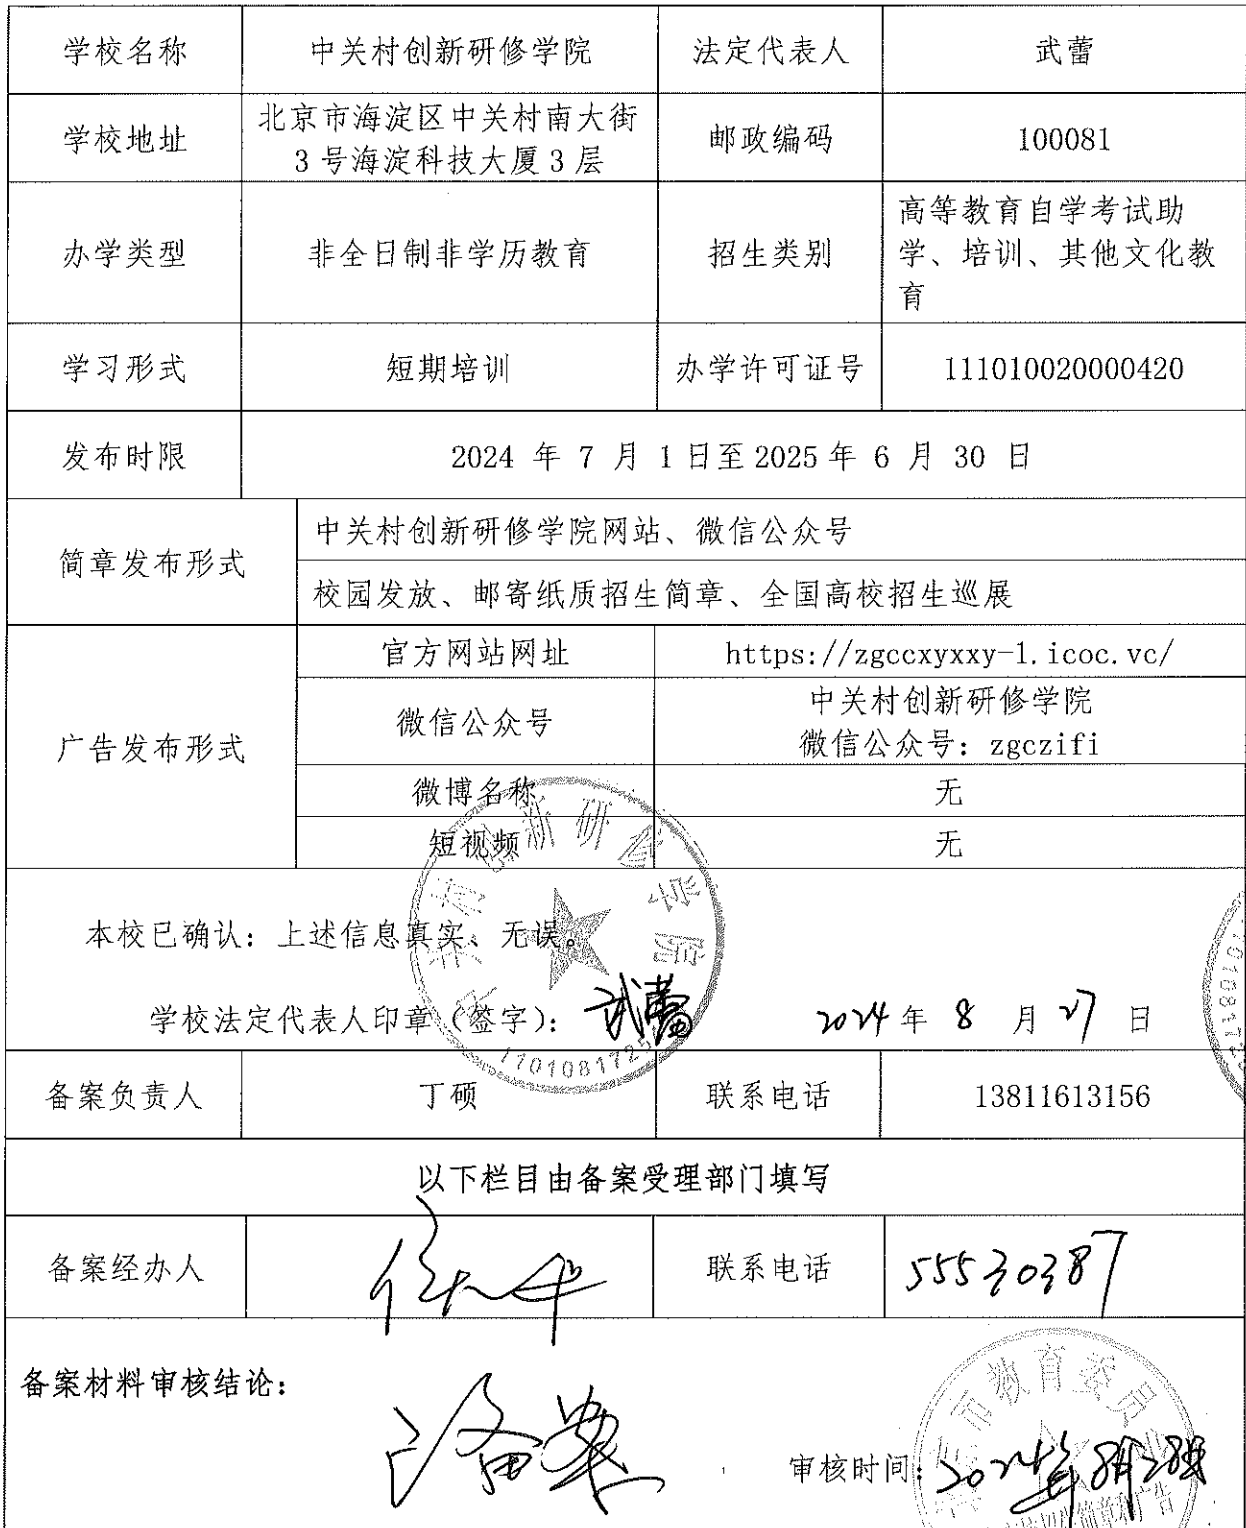 学校名称 中关村创新研修学院 法定代表人 武蕾
学校地址 北京市海淀区中关村南大街
3号海淀科技大厦3层 邮政编码 100081
办学类型 非全日制非学历教育 招生类别 高等教育自学考试助
学、培训、其他文化教
育
学习形式 短期培训 办学许可证号 111010020000420
发布时限 2024 年 7 月 1日至2025年 6 月 30 日
简章发布形式 中关村创新研修学院网站、微信公众号
校园发放、邮寄纸质招生简章、全国高校招生巡展
广告发布形式 官方网站网址 https://zgccxyxxy-1.icoc.vc/
微信公众号 中关村创新研修学院
微信公众号：zgczifi
微博名称 无
短视频 无
本校已确认：上述信息真实、无误。
学校法定代表人印章（签字）：武蕾 2024年 8 月 27 日
备案负责人 丁硕 联系电话 13811613156
以下栏目由备案受理部门填写
备案经办人 联系电话 55530387
备案材料审核结论：
已备案
审核时间：2024年8月28日